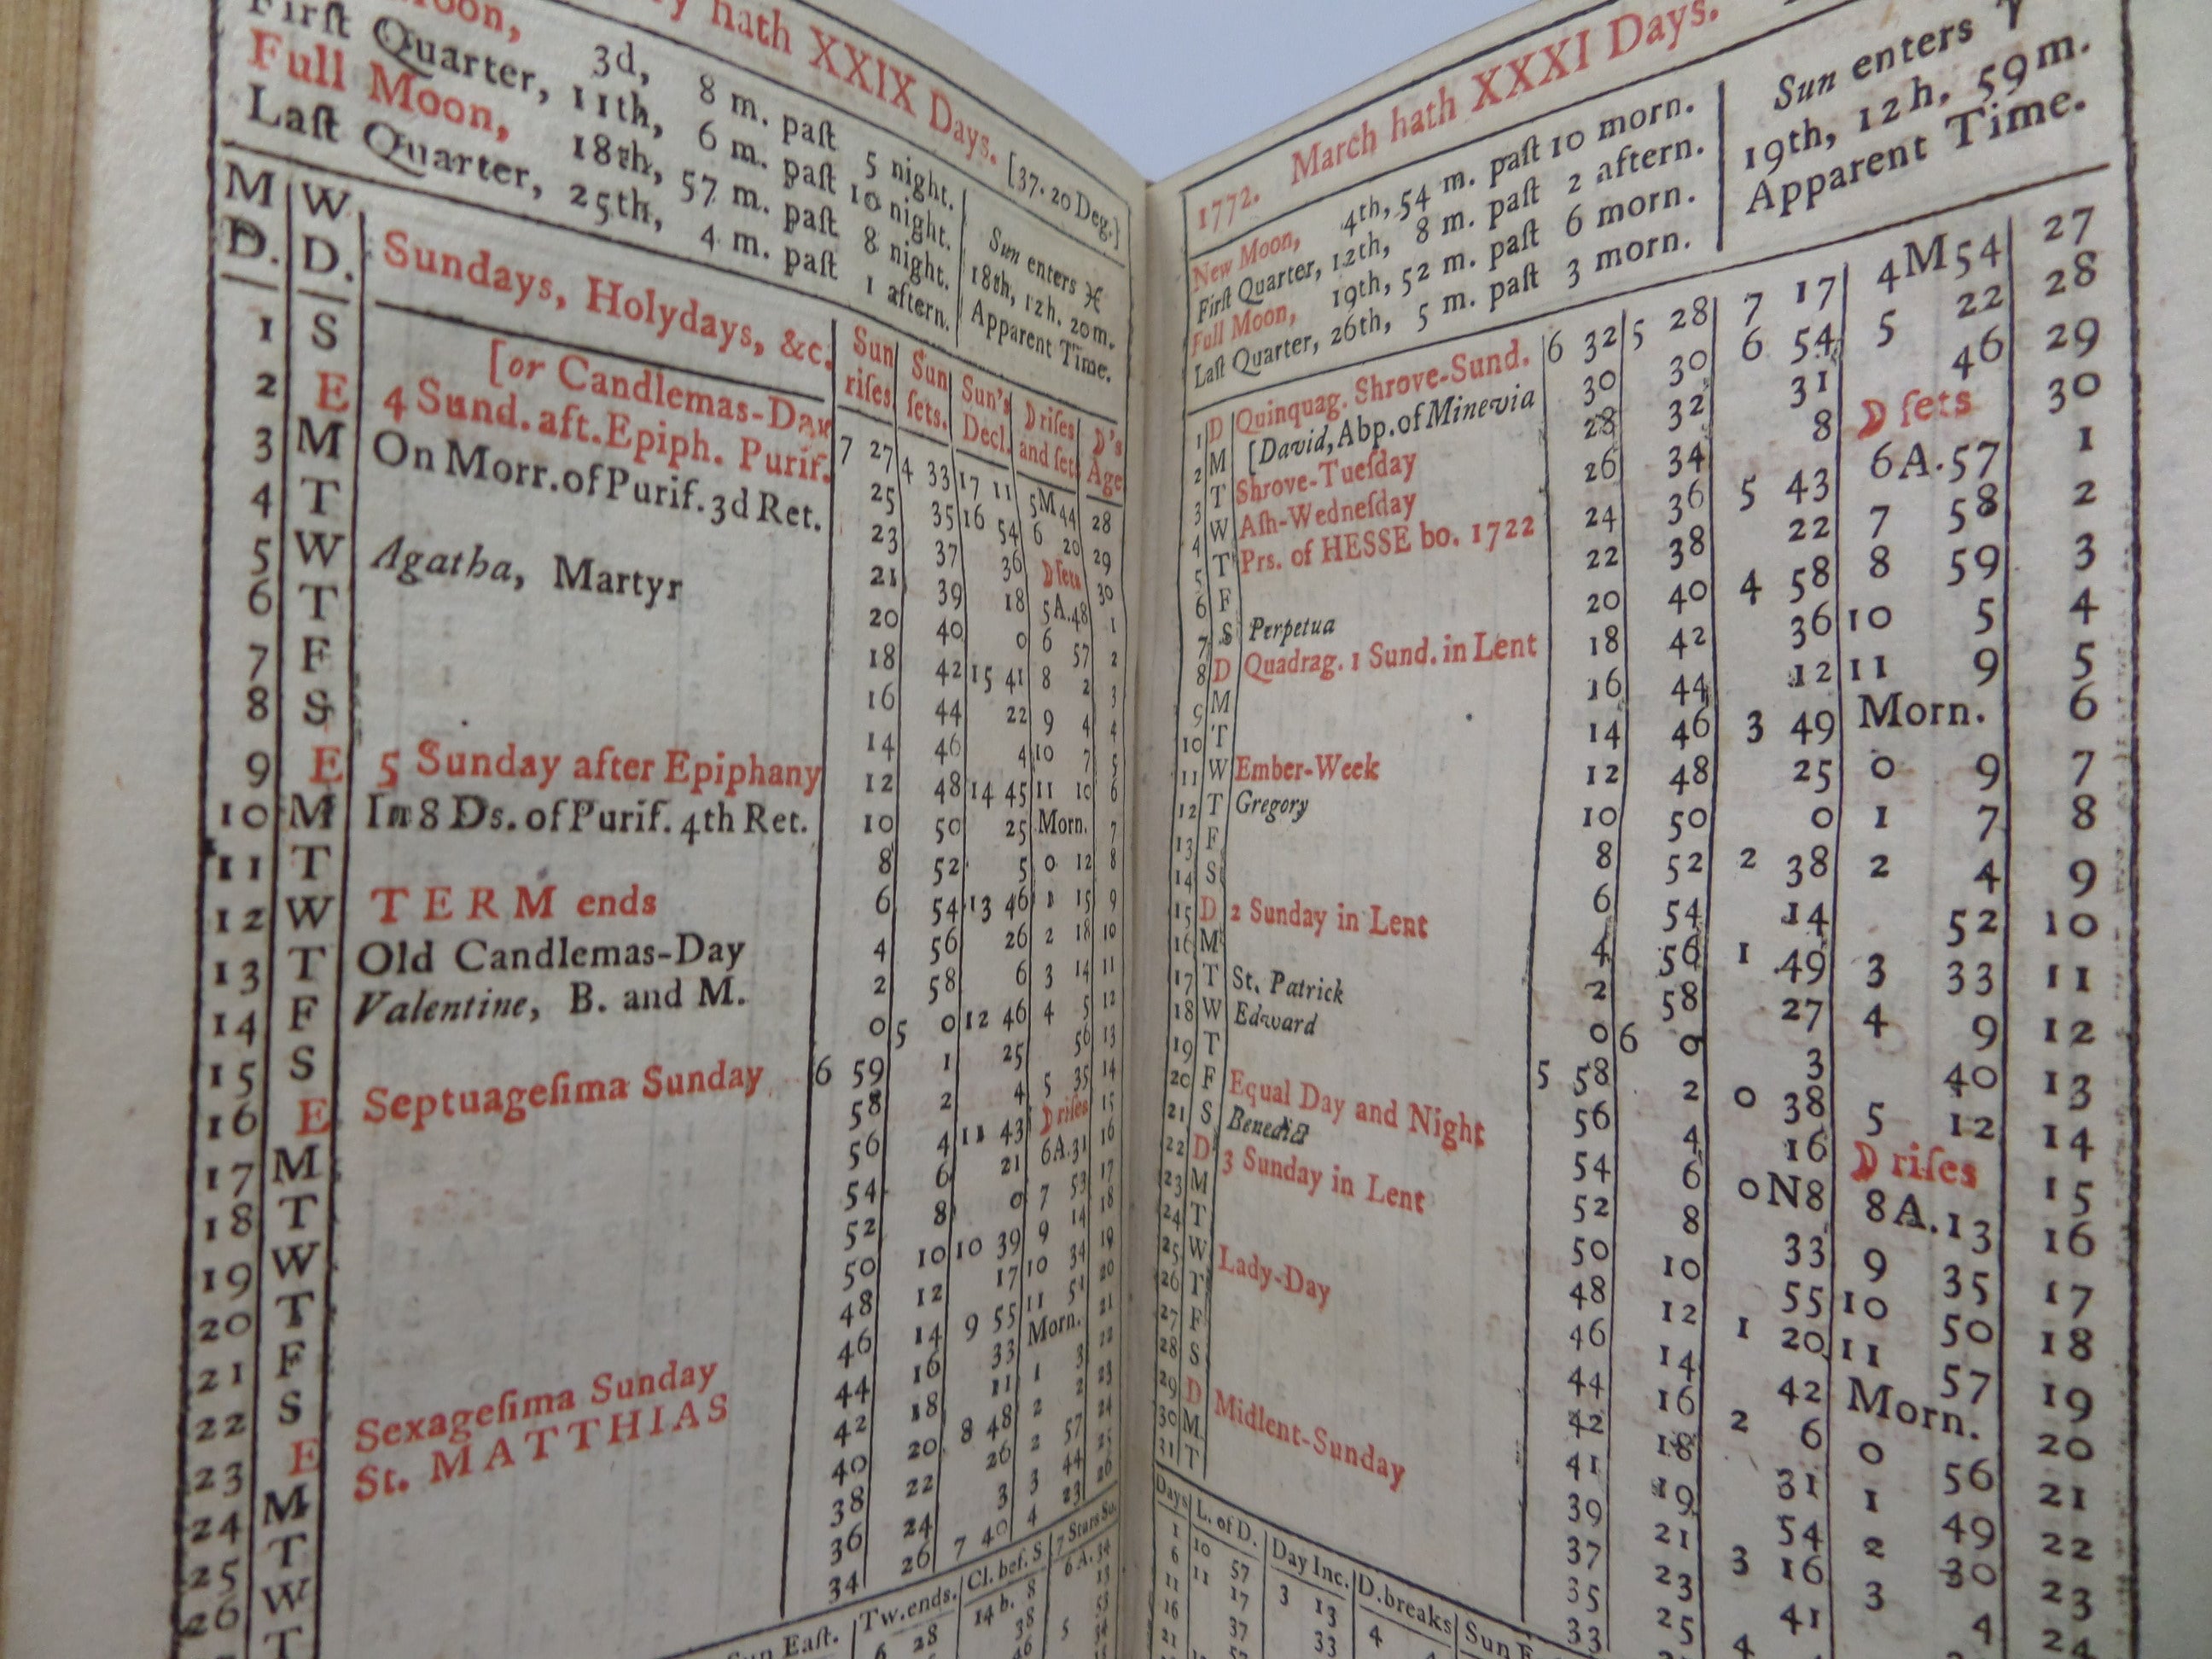 y hath XXIX Days. [37. 20 Deg.]
oon, 3d, 8 m. paſt 5 night.
Firſt Quarter, 11th, 6 m. paſt 10 night.
Full Moon, 18th, 57 m. paſt 8 night.
Laſt Quarter, 25th, 4 m. paſt 1 aftern.
Sun enters ♓
18th, 12h. 20m.
Apparent Time.
M D. W D. Sundays, Holydays, &c. Sun riſes Sun ſets. Sun's Decl. ☽ riſes and ſets ☽'s Age
[or Candlemas-Day
1 S 7 27 4 33 17 11 5M44 28
2 E 4 Sund. aft. Epiph. Purif. 25 35 16 54 6 20 29
3 M On Morr. of Purif. 3d Ret. 23 37 36 ☽ ſets 30
4 T 21 39 18 5A.48 1
5 W Agatha, Martyr 20 40 0 6 57 2
6 T 18 42 15 41 8 2 3
7 F 16 44 22 9 4 4
8 S 14 46 4 10 7 5
9 E 5 Sunday after Epiphany 12 48 14 45 11 10 6
10 M In 8 Ds. of Purif. 4th Ret. 10 50 25 Morn. 7
11 T 8 52 5 0 12 8
12 W TERM ends 6 54 13 46 1 15 9
13 T Old Candlemas-Day 4 56 26 2 18 10
14 F Valentine, B. and M. 2 58 6 3 14 11
15 S 0 5 0 12 46 4 5 12
16 E Septuageſima Sunday 6 59 1 25 56 13
17 M 58 2 4 5 35 14
18 T 56 4 11 43 ☽ riſes 15
19 W 54 6 21 6A.31 16
20 T 52 8 0 7 53 17
21 F 50 10 10 39 9 14 18
22 S 48 12 17 10 34 19
23 E Sexageſima Sunday 46 14 9 55 11 51 20
24 M St. MATTHIAS 44 16 33 Morn. 21
25 T 42 18 11 1 3 22
26 W 40 20 8 48 2 2 23
T 38 22 26 2 57 24
36 24 3 3 44 25
34 26 7 40 4 23 26
Sun Eaſt. Tw. ends. Cl. bef. S 7 Stars So.
6 28 14 b. 8 6A.34
38 13
46 5 53
1772. March hath XXXI Days.
New Moon, 4th, 54 m. paſt 10 morn.
Firſt Quarter, 12th, 8 m. paſt 2 aftern.
Full Moon, 19th, 52 m. paſt 6 morn.
Laſt Quarter, 26th, 5 m. paſt 3 morn.
Sun enters ♈
19th, 12h, 59m.
Apparent Time.
1 D Quinquag. Shrove-Sund. 6 32 5 28 7 17 4M54 27
2 M [David, Abp. of Minevia 30 30 6 54 5 22 28
3 T Shrove-Tueſday 28 32 31 46 29
4 W Aſh-Wedneſday 26 34 8 ☽ ſets 30
5 T Prs. of HESSE bo. 1722 24 36 5 43 6A.57 1
6 F 22 38 22 7 58 2
7 S Perpetua 20 40 4 58 8 59 3
8 D Quadrag. 1 Sund. in Lent 18 42 36 10 5 4
9 M 16 44 12 11 9 5
10 T 14 46 3 49 Morn. 6
11 W Ember-Week 12 48 25 0 9 7
12 T Gregory 10 50 0 1 7 8
13 F 8 52 2 38 2 4 9
14 S 6 54 14 52 10
15 D 2 Sunday in Lent 4 56 1 49 3 33 11
16 M 2 58 27 4 9 12
17 T St. Patrick 0 6 0 3 40 13
18 W Edward 5 58 2 0 38 5 12 14
19 T 56 4 16 ☽ riſes 15
20 F Equal Day and Night 54 6 0N8 8A.13 16
21 S Benedict 52 8 33 9 35 17
22 D 3 Sunday in Lent 50 10 55 10 50 18
23 M 48 12 1 20 11 57 19
24 T 46 14 42 Morn. 20
25 W Lady-Day 44 16 2 6 0 56 21
26 T 42 18 31 1 49 22
27 F 41 19 54 2 30 23
28 S 39 21 3 16 3 4 24
29 D Midlent-Sunday 37 23 41
30 M 35 25 4
31 T 33
Days L. of D. Day Inc. D. breaks Sun E
1 10 57 3 13 4
6 11 17 33
11 37
16 57
21